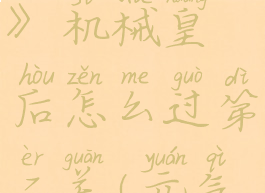 》机械皇
hòu zěn me guò dì
后怎么过第
èr guān yuán qì